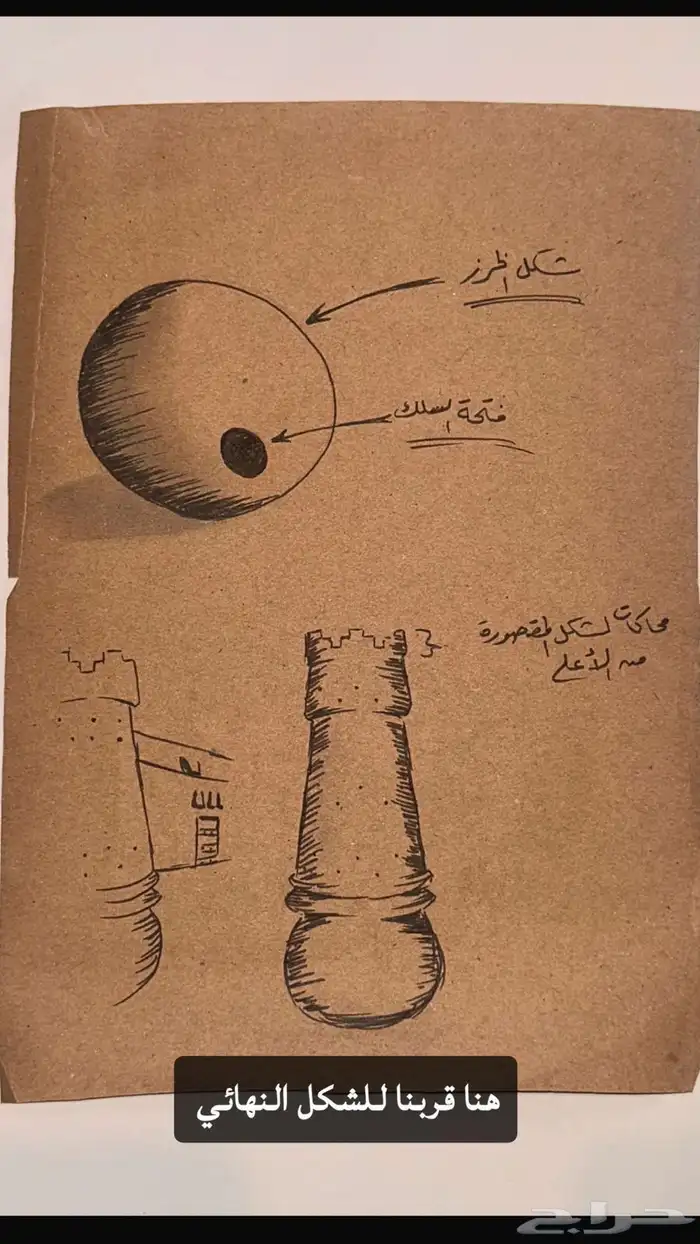 شكل الخرز
فتحة السلك
محاكات لشكل المقصورة
من الأعلى
هنا قربنا للشكل النهائي
حراج